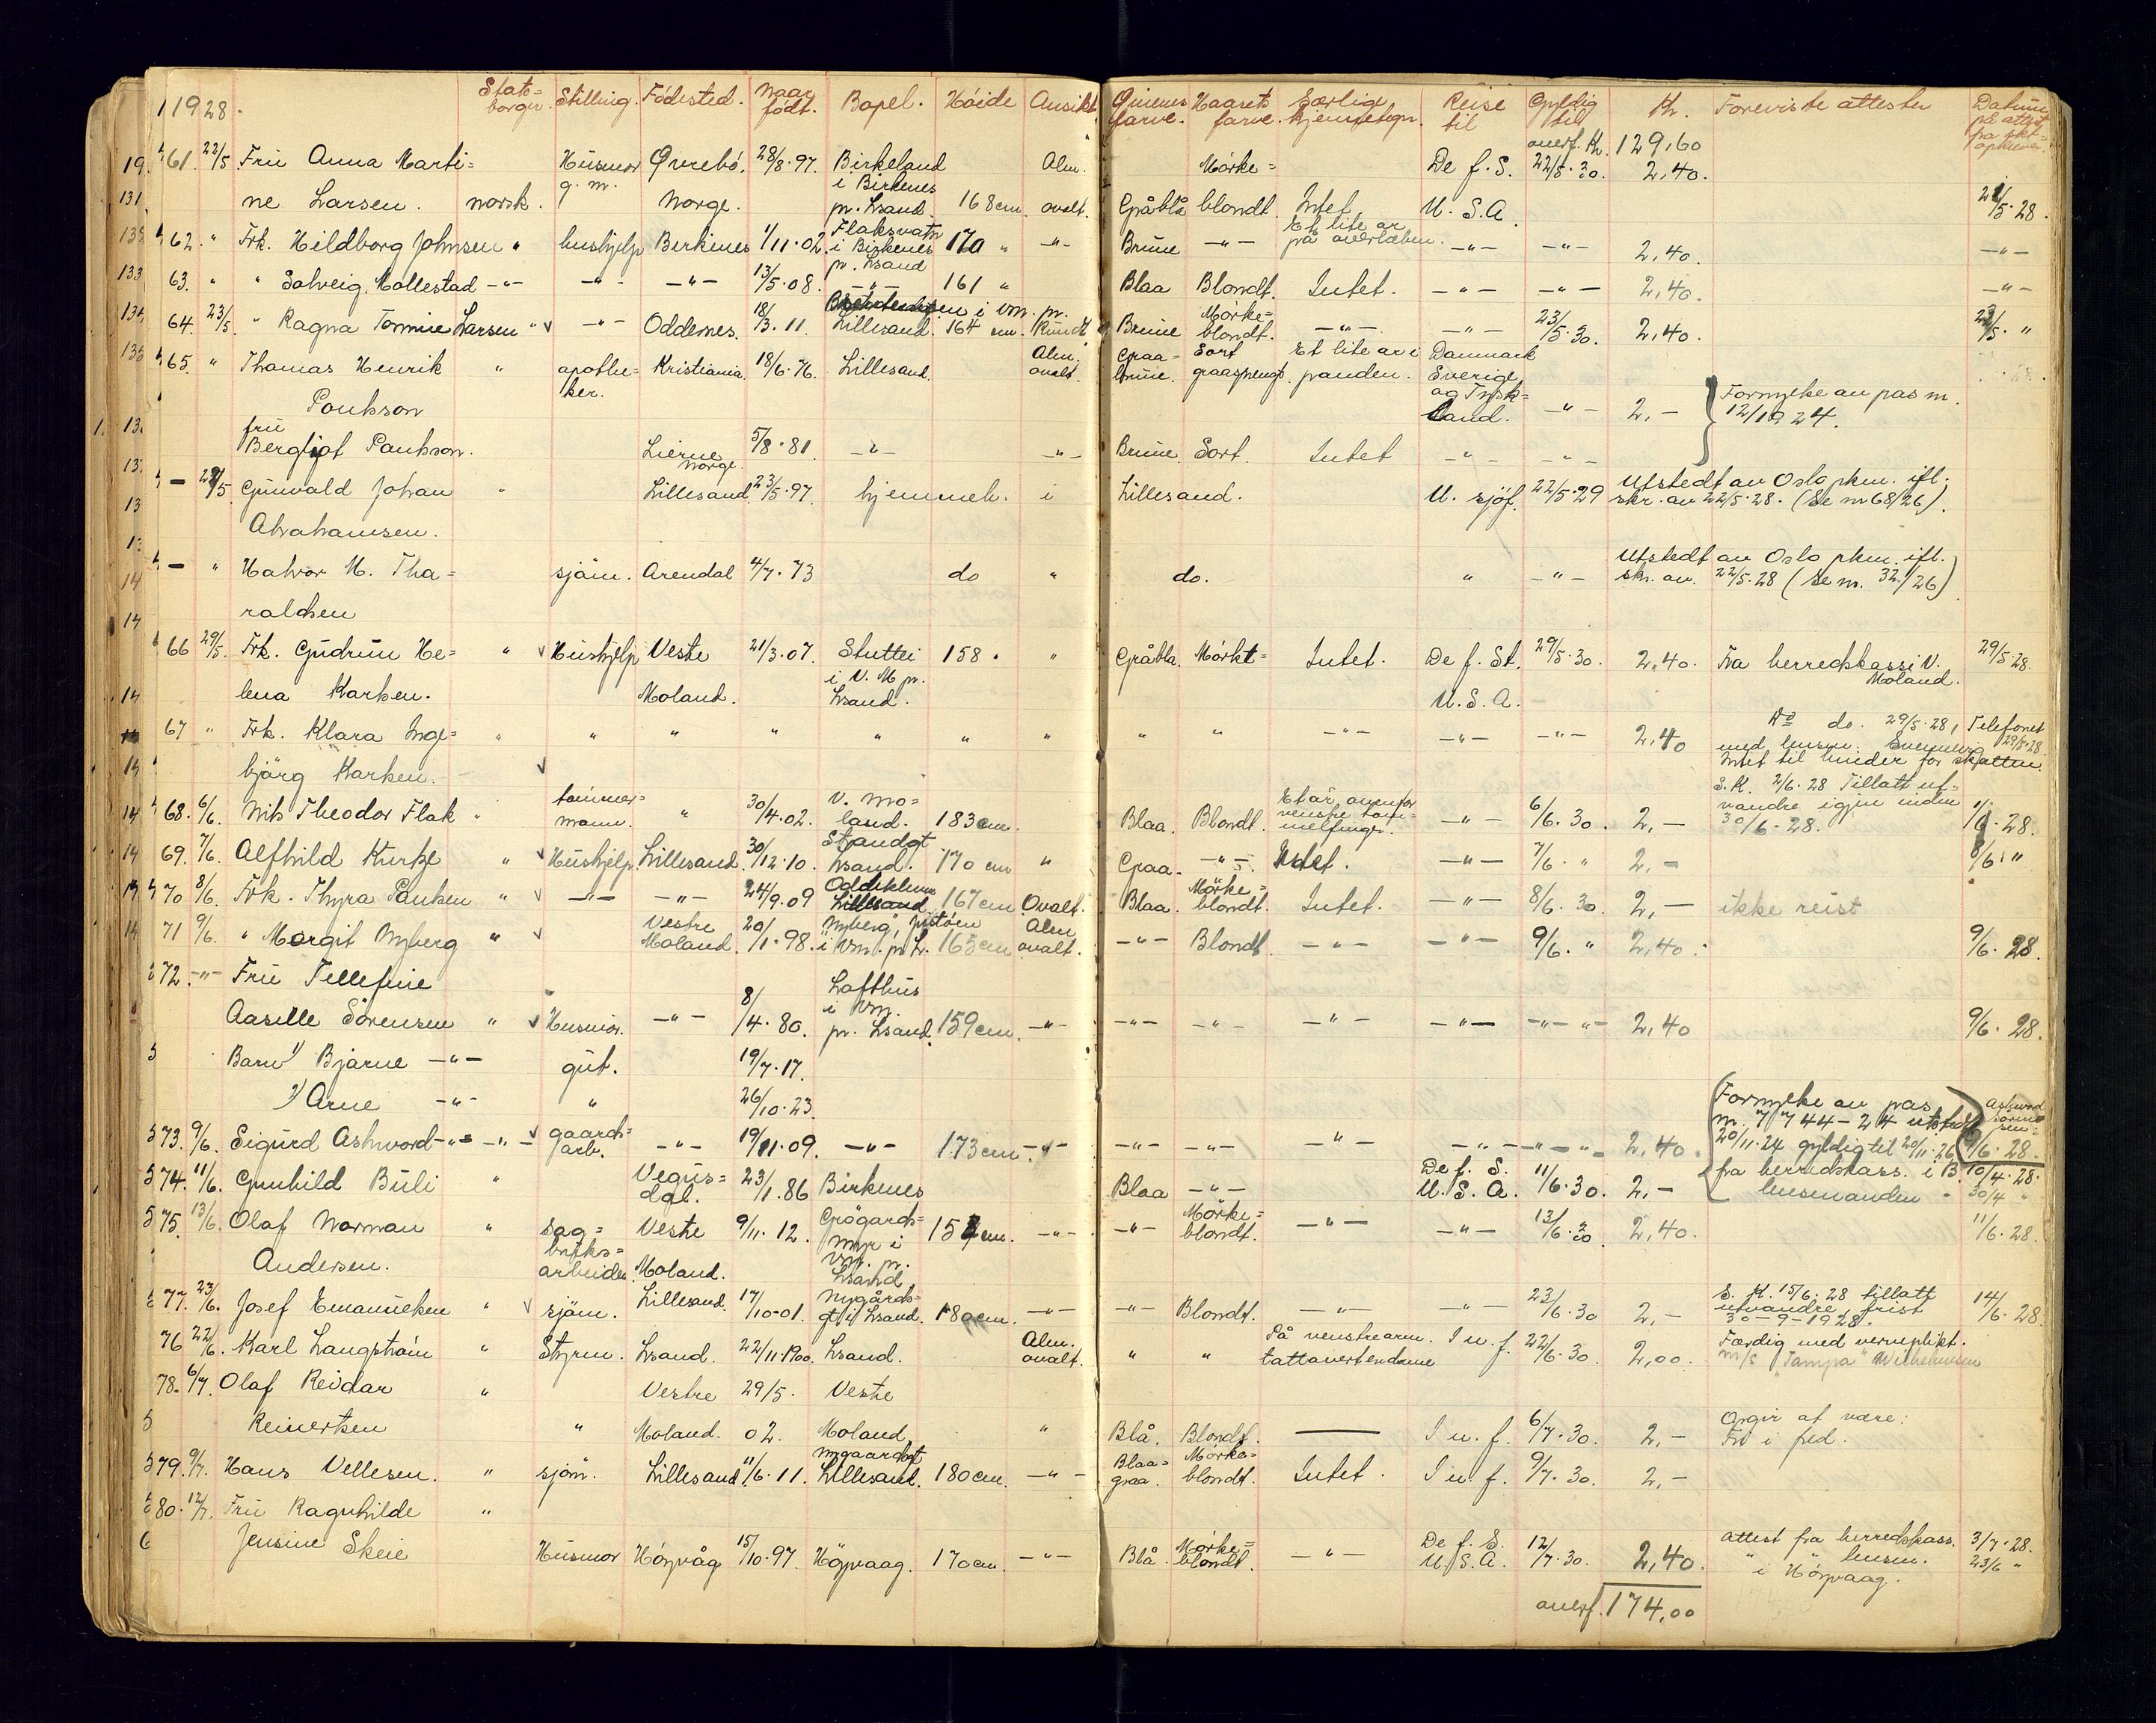 1928. Stats= borger. Stilling. Födested. Naar födt. Bopel. Höide Ansikt Öinenes farve. Haarets farve. Særlige kjennetegn. Reise til Gyldig til Kr. Foreviste attester Datum på attest fra
overf. Kr. 129,60
61. 22/5 Frü Anna Marti= Husmor Øvrebö. 28/8.97. Birkeland Alm. Mörke= De f. S. 22/5.30. 2,40.
g. m. i Birkenes
ne Larsen. norsk. Norge. pr. Lsand. 168 cm. ovalt. Gråblå blondt. Intet. U. S. A. 22/5.28.
62. " Frk. Hildborg Johnsen " hushjelp Birkenes 1/11.02. Flaksvatn i Birkenes pr. Lsand 170 " -"- Brune -"- Et lite ar på overleben. -"- -"- 2,40. -"-
63. " " Solveig Mollestad -"- -"- -"- 13/5.08. -"- 161 " Blaa Blondt. Intet. -"- -"- 2,40. -"-
64. 23/5. " Ragna Tomine Larsen " -"- Oddernes. 18/3.11. i Vm. pr. Lillesand. 164 cm. Rundt Brune Mörke= blondt. -"- -"- 23/5.30. 2,40. 23/5. "
65. " Thomas Henrik " apothe= ker. Kristiania. 18/6.76. Lillesand. Alm. ovalt. Graa= brune. Sort graasprengt. Et lite ar i panden. Danmark Sverige og Tysk= land. -"- 2,- Fornyelse av pas nr. 12/1924.
Poulsson
frü
Bergljot Poulsson. Lierne Norge. 5/8.81. -"- -"- Brune Sort. Intet -"- -"-
- 22/5. Gunvald Johan " Lillesand. 23/5.97. hjemmeh. i Lillesand. U. sjöf. 22/5.29 Utstedt av Oslo pkm. ifl. skr. av 22/5.28. (Se nr 68/26).
Abrahamsen.
- " Halvor M. Tha= sjöm. Arendal 4/7.73 do " do. " -"- Utstedt av Oslo pkm. ifl. skr. av. 22/5.28 (Se nr. 32/26)
raldsen
66 29/5. Frk. Gudrün He= " Hüshjelp Vestre 21/3.07. Stuttei 158 " " Gråblå. Mörkt= Intet. De f. St. 29/5.30. 2,40. Fra herredskass i V. Moland. 29/5.28.
i V. M pr.
lena Karlsen. Moland. Lsand. U. S. A.
67 " Frk. Klara Inge= " " " " " " " " " -"- -"- -"- 2,40 do. 29/5.28, Telefonet
med lensm. 29/5.28.
björg Karlsen. Intet til hinder for
68. 6/6. Nils Theodor Flak " tömmer= mann. " 30/4.02. V. Mo= land. 183 cm. Blaa. Blondt. Et ar ovenfor venstre tom= melfinger. -"- 6/6.30. 2,- S. K. 2/6.28 Tillatt ut= vandre igjen inden 30/6-28. 1/6.28.
69. 7/6. Alfhild " Hüshjelp. Lillesand. 30/12.10. Strandgt Lsand. 170 cm " Graa. -"- Intet. -"- 7/6. " 2,- 8/6. "
70 8/6. Frk. Thyra Paulsen " -"- -"- 24/9.09 Lillesand 167 cm Ovalt. Blaa. Mörke= blondt. Intet. -"- 8/6.30. 2,- ikke reist
71 9/6. " Margit Nyberg " Vestre Moland. 20/1.98. Nyberg, i Vm. pr. L. 165 cm Alm ovalt. -"- Blondt -"- -"- 9/6. " 2,40. 9/6.28.
72. -"- Frü Tellefine
Aaselle Sörensen " Husmor. -"- 8/4.80. Lofthüs i Vm. pr. Lsand. 159 cm. -"- -"- -"- -"- -"- -"- 2,40 9/6.28.
Barn 1/ Bjarne -"- güt. 19/7.17.
2/ Arne -"- " 26/10.23.
73. 9/6. Sigurd Ashvord -"- -"- gaards= arb. -"- 19/11.09. -"- 173 cm. -"- -"- -"- -"- -"- -"- 2,40. Fornyelse av pas nr. 7744-24 utstedt 20/11.24 gyldig til 20/11.26 9/6.28.
74. 11/6. Gunhild Büli " Vegüs= dal. 23/1.86 Birkenes Blaa -"- De f. S. U. S. A. 11/6.30. 2,- fra herredskass. i B. 10/4.28. lensmanden " 30/4 "
75. 13/6. Olaf Norman " Sag= bruks= arbeider. Vestre Moland. 9/11.12. Grögards= myr i Vm. pr. Lsand 154 cm. -"- -"- Mörke= blondt. -"- -"- 13/6.30. 2,40. 11/6.28.
Andersen.
77. 23/6. Josef Emanüelsen " sjöm. Lillesand. 17/10-01. Nygårds= gt i Lsand. 180 cm. -"- -"- Blondt. -"- -"- 23/6.30 2,- S. K. 15/6.28 tillatt utvandre, frist 30-9-1928. 14/6.28.
76 22/6. Karl Langström " Styrm. Lsand. 22/11.1900. Lsand. Alm. ovalt. " " På venstre arm. tattovert I u. f. 22/6.30. 2,00. Færdig med verneplikt. m/s "Tampa" Wilhelmsen
78. 6/7. Olaf Reidar " Vestre 29/5. Vestre
Reinertsen " Moland. 02. Moland, " Blå. Blondt. — I u. f. 6/7.30. 2,- Opgir at være: Fri i fred.
79. 9/7. Hans Vellesen. " sjöm. Lillesand. 11/6.11. Nygaardsgt Lillesand. 180 cm. -"- Blaa= graa. Mörke= blondt. Intet. I u. f. 9/7.30. 2,-
80. 12/7. Frü Ragnhilde "
Jensine Skeie Hüsmor Hövåg 15/10.97. Hövaag. 170 cm. -"- Blå. Mörke= blondt. -"- De f. S. U. S. A. 12/7.30. 2,40. Attest fra herredskass. 3/7.28. " " lensm. 23/6 "
i Hövaag.
overf. 174,00